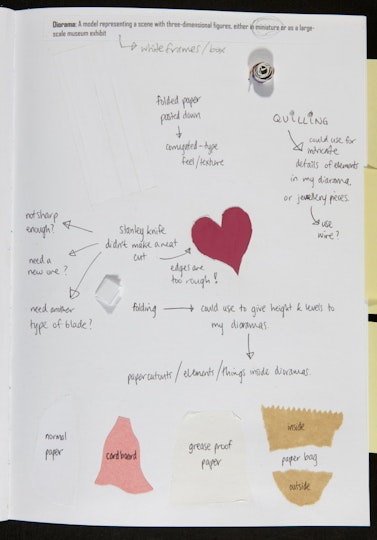 Diorama: A model representing a scene with three-dimensional figures, either in miniature or as a large-
scale museum exhibit
white frames/box
folded paper
pasted down
corrugated-type
feel/texture
QUILLING
could use for
intricate
details of elements
in my diorama
or jewellery pieces.
use
wire?
not sharp
enough?
Stanley knife
didn't make a neat
cut
need a
new one?
edges are
too rough!
need another
type of blade?
folding
could use to give height & levels to
my dioramas.
paper cutouts/elements/things inside dioramas.
normal
paper
cardboard
grease proof
paper
inside
paper bag
outside